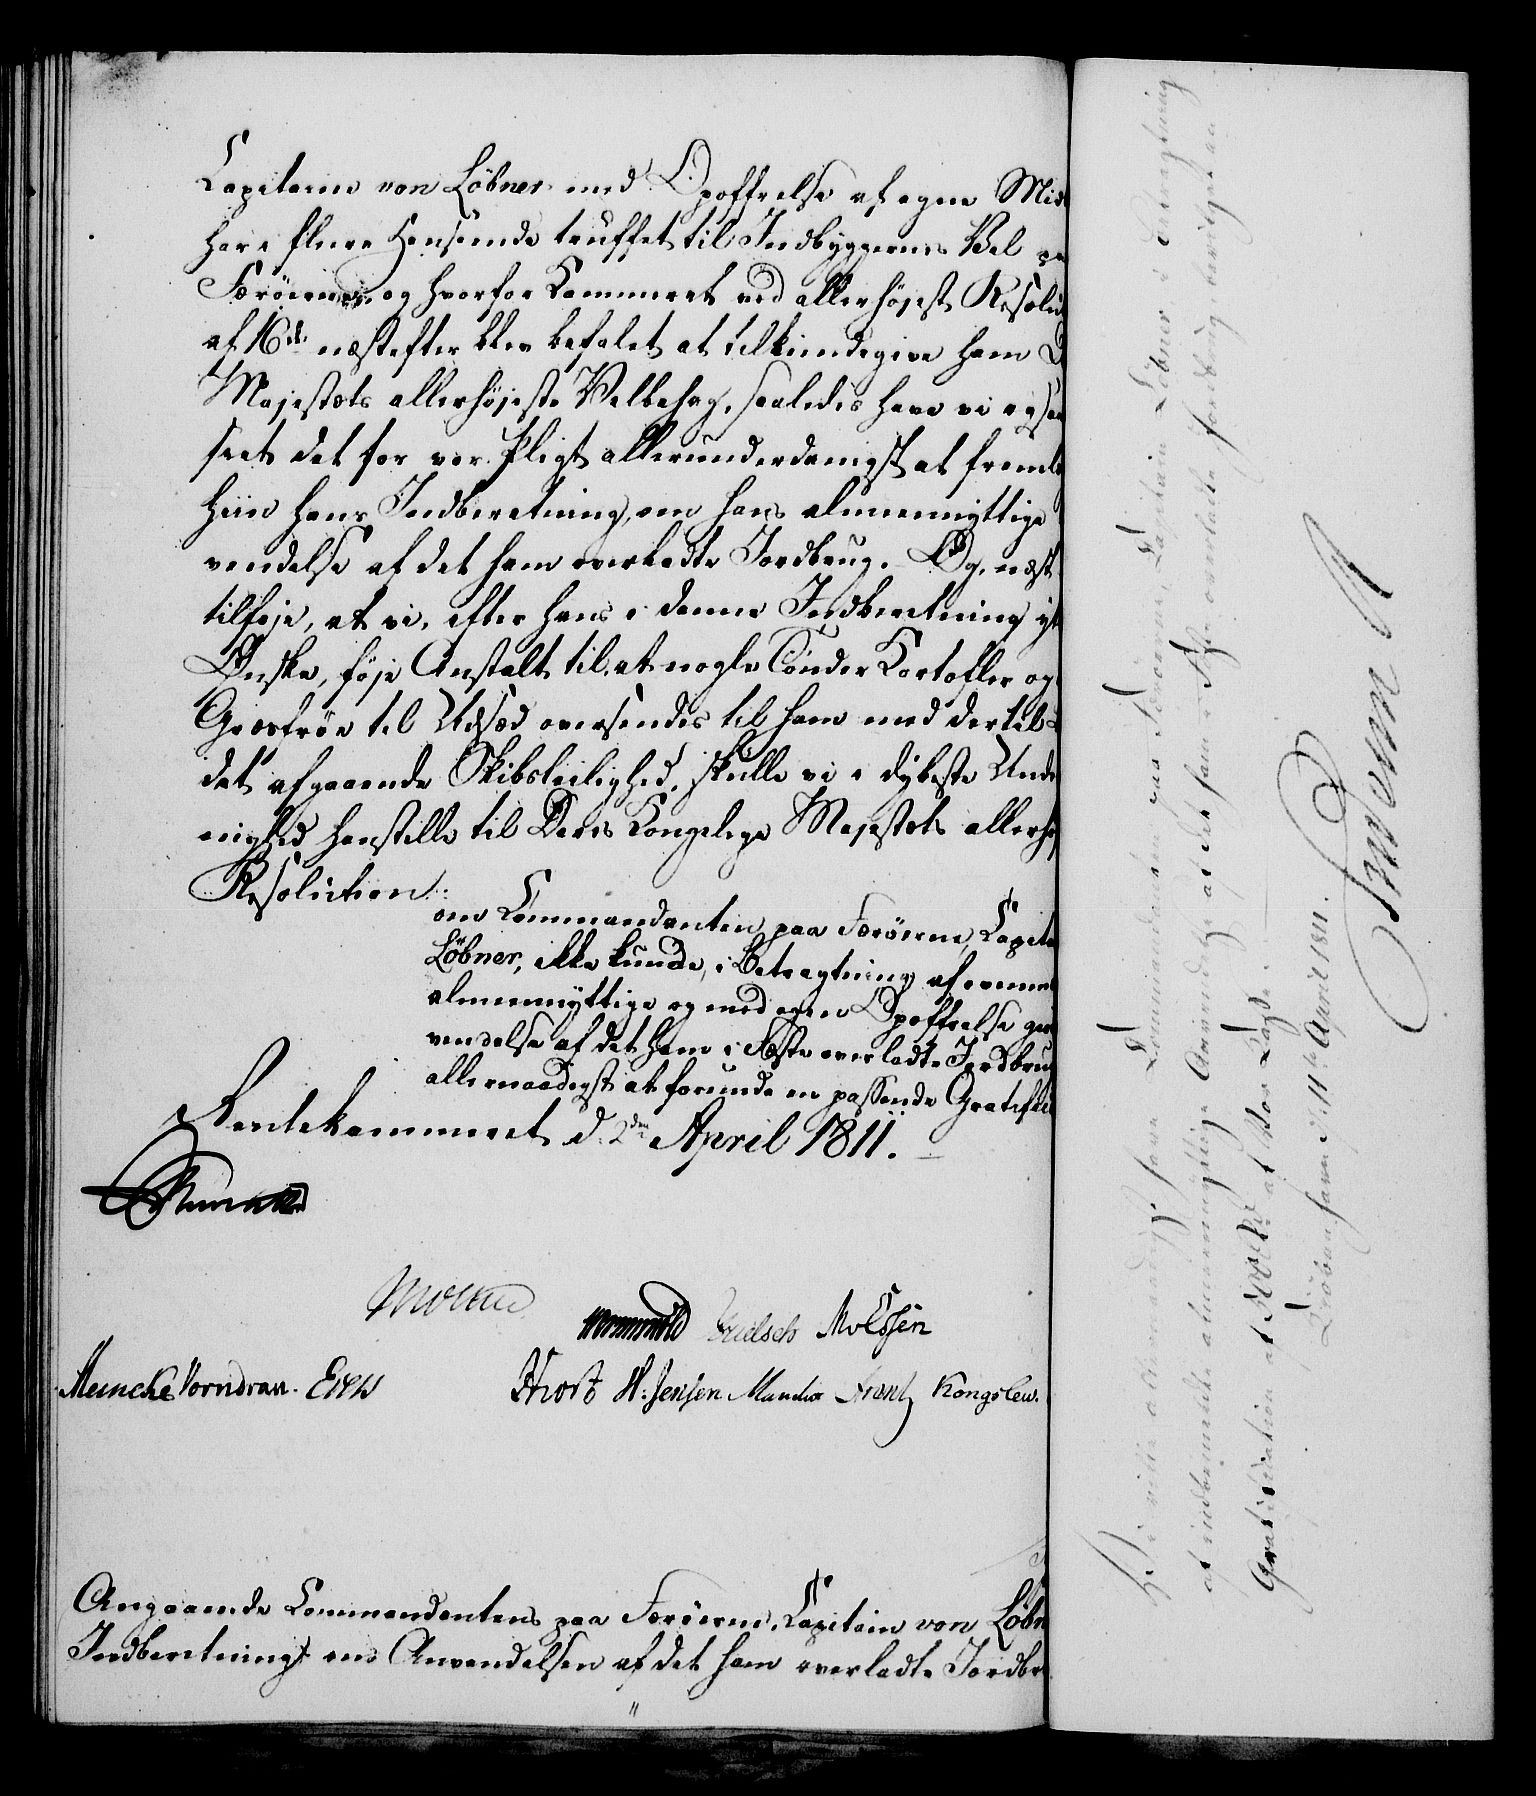 Capitaine von Löbner med Opoffrelse af egne Mid
har i flere Henseende truffet til Indbyggernes Vel paa
Færöerne, og hvorfor Kammeret ved allerhöjest Resolut
af 16de næstefter blev befalet at tilkiendegive ham D
Majestæts allerhöjeste Velbehag, saaledes have vi ogsaa
seet det for vor Pligt allerunderdanigst at freml
hans Indberetning, om hans almeennyttige
vendelse af det ham overladte Jordbrug. Og, næst
tilföje, at vi, efter hans i denne Indberetning yt
Ønske, föje Anstalt til, at nogle Tönder Kartofler og
Græsfröe til Udsæd oversendes til ham med dertil
det afgaaende Skibsleilighed, skulle vi i dybeste Unde
nighed henstille til Deres Kongelige Majestæts allerhö
Resolution:
om Commandanten paa Færöerne, Capita
Löbner, ikke kunde, i Betragtning af
almeennyttige og med egen Opoffrelse
vendelse af det ham i Fæste overladte Jordbrug
allernaadigst at forunde en passende Gratifica
Rentekammeret d. 2den April 1811.
Wormskiold Mölssen
Meincke Vorndran.
H. Jensen Kongslew.
Angaaende Commandantens paa Færöerne, Capitain von Löbn
Indberetning om Anvendelsen af det ham overladte Jordbr
"
Vi ville allernaadigst have Commandanten paa Færöerne, Capitain Löbner, i Betragtning
af indberettede almeennyttige Anvendelse af det ham i Fæste overladte Jordbrug bevilget en
Gratification af af Vor Casse.
Kiöbenhavn d. 11te April 1811.
Frederik R